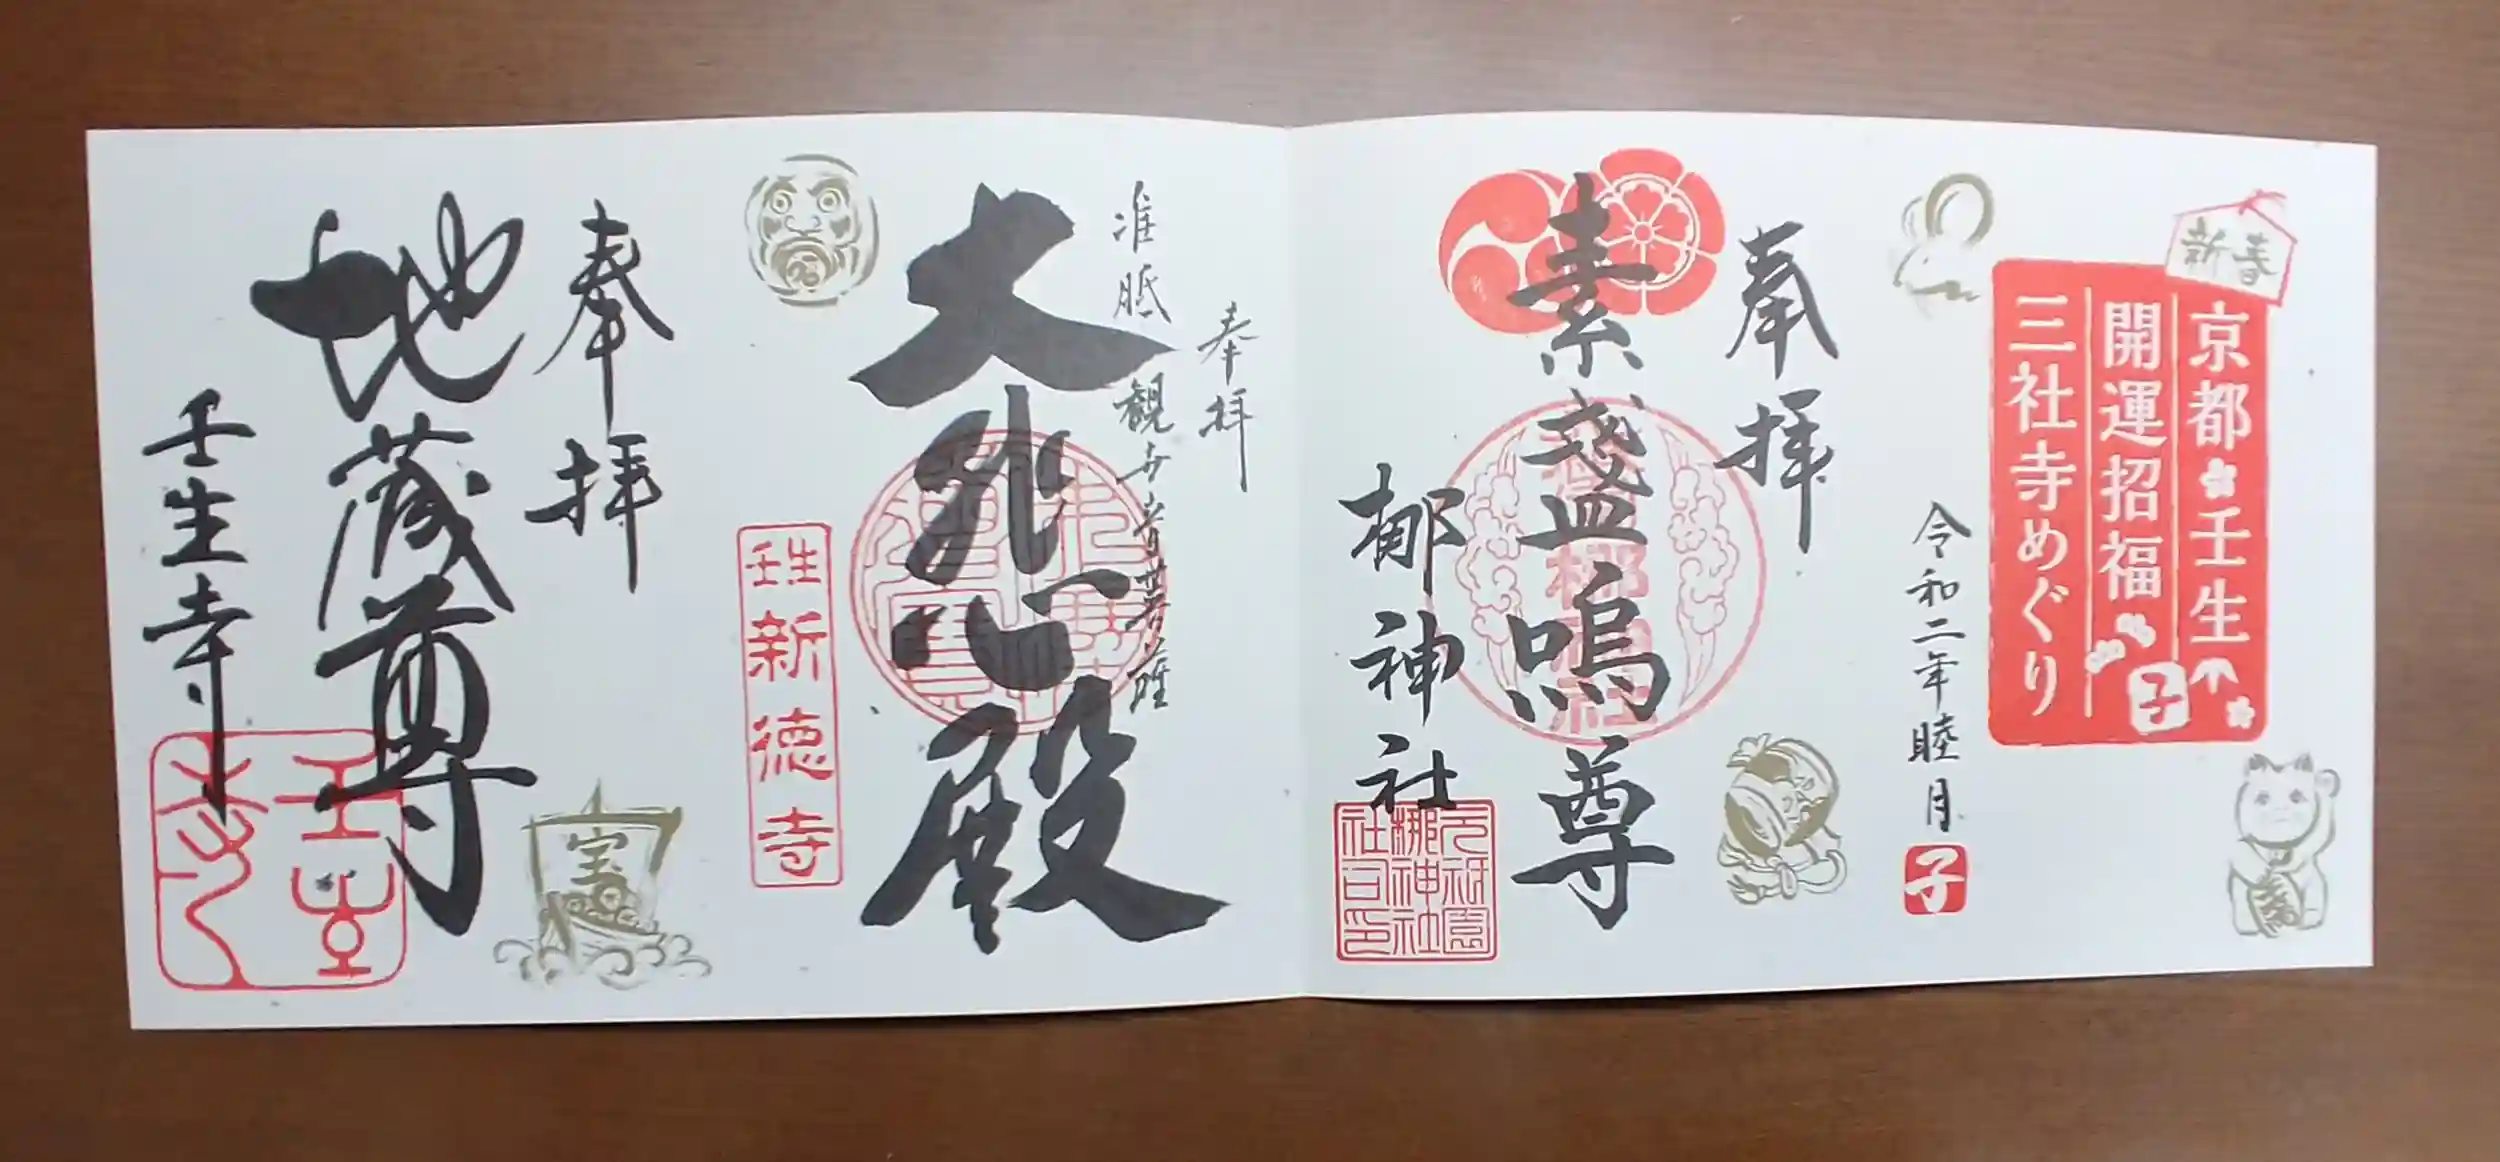 新春
京都壬生
開運招福
三社寺めぐり
子
令和二年睦月
子
奉拝
素盞嗚尊
梛神社
元祇園
梛神社
奉拝
准胝観世音菩薩
大悲殿
壬生
新徳寺
奉拝
地蔵尊
壬生寺
宝
壬生
寺